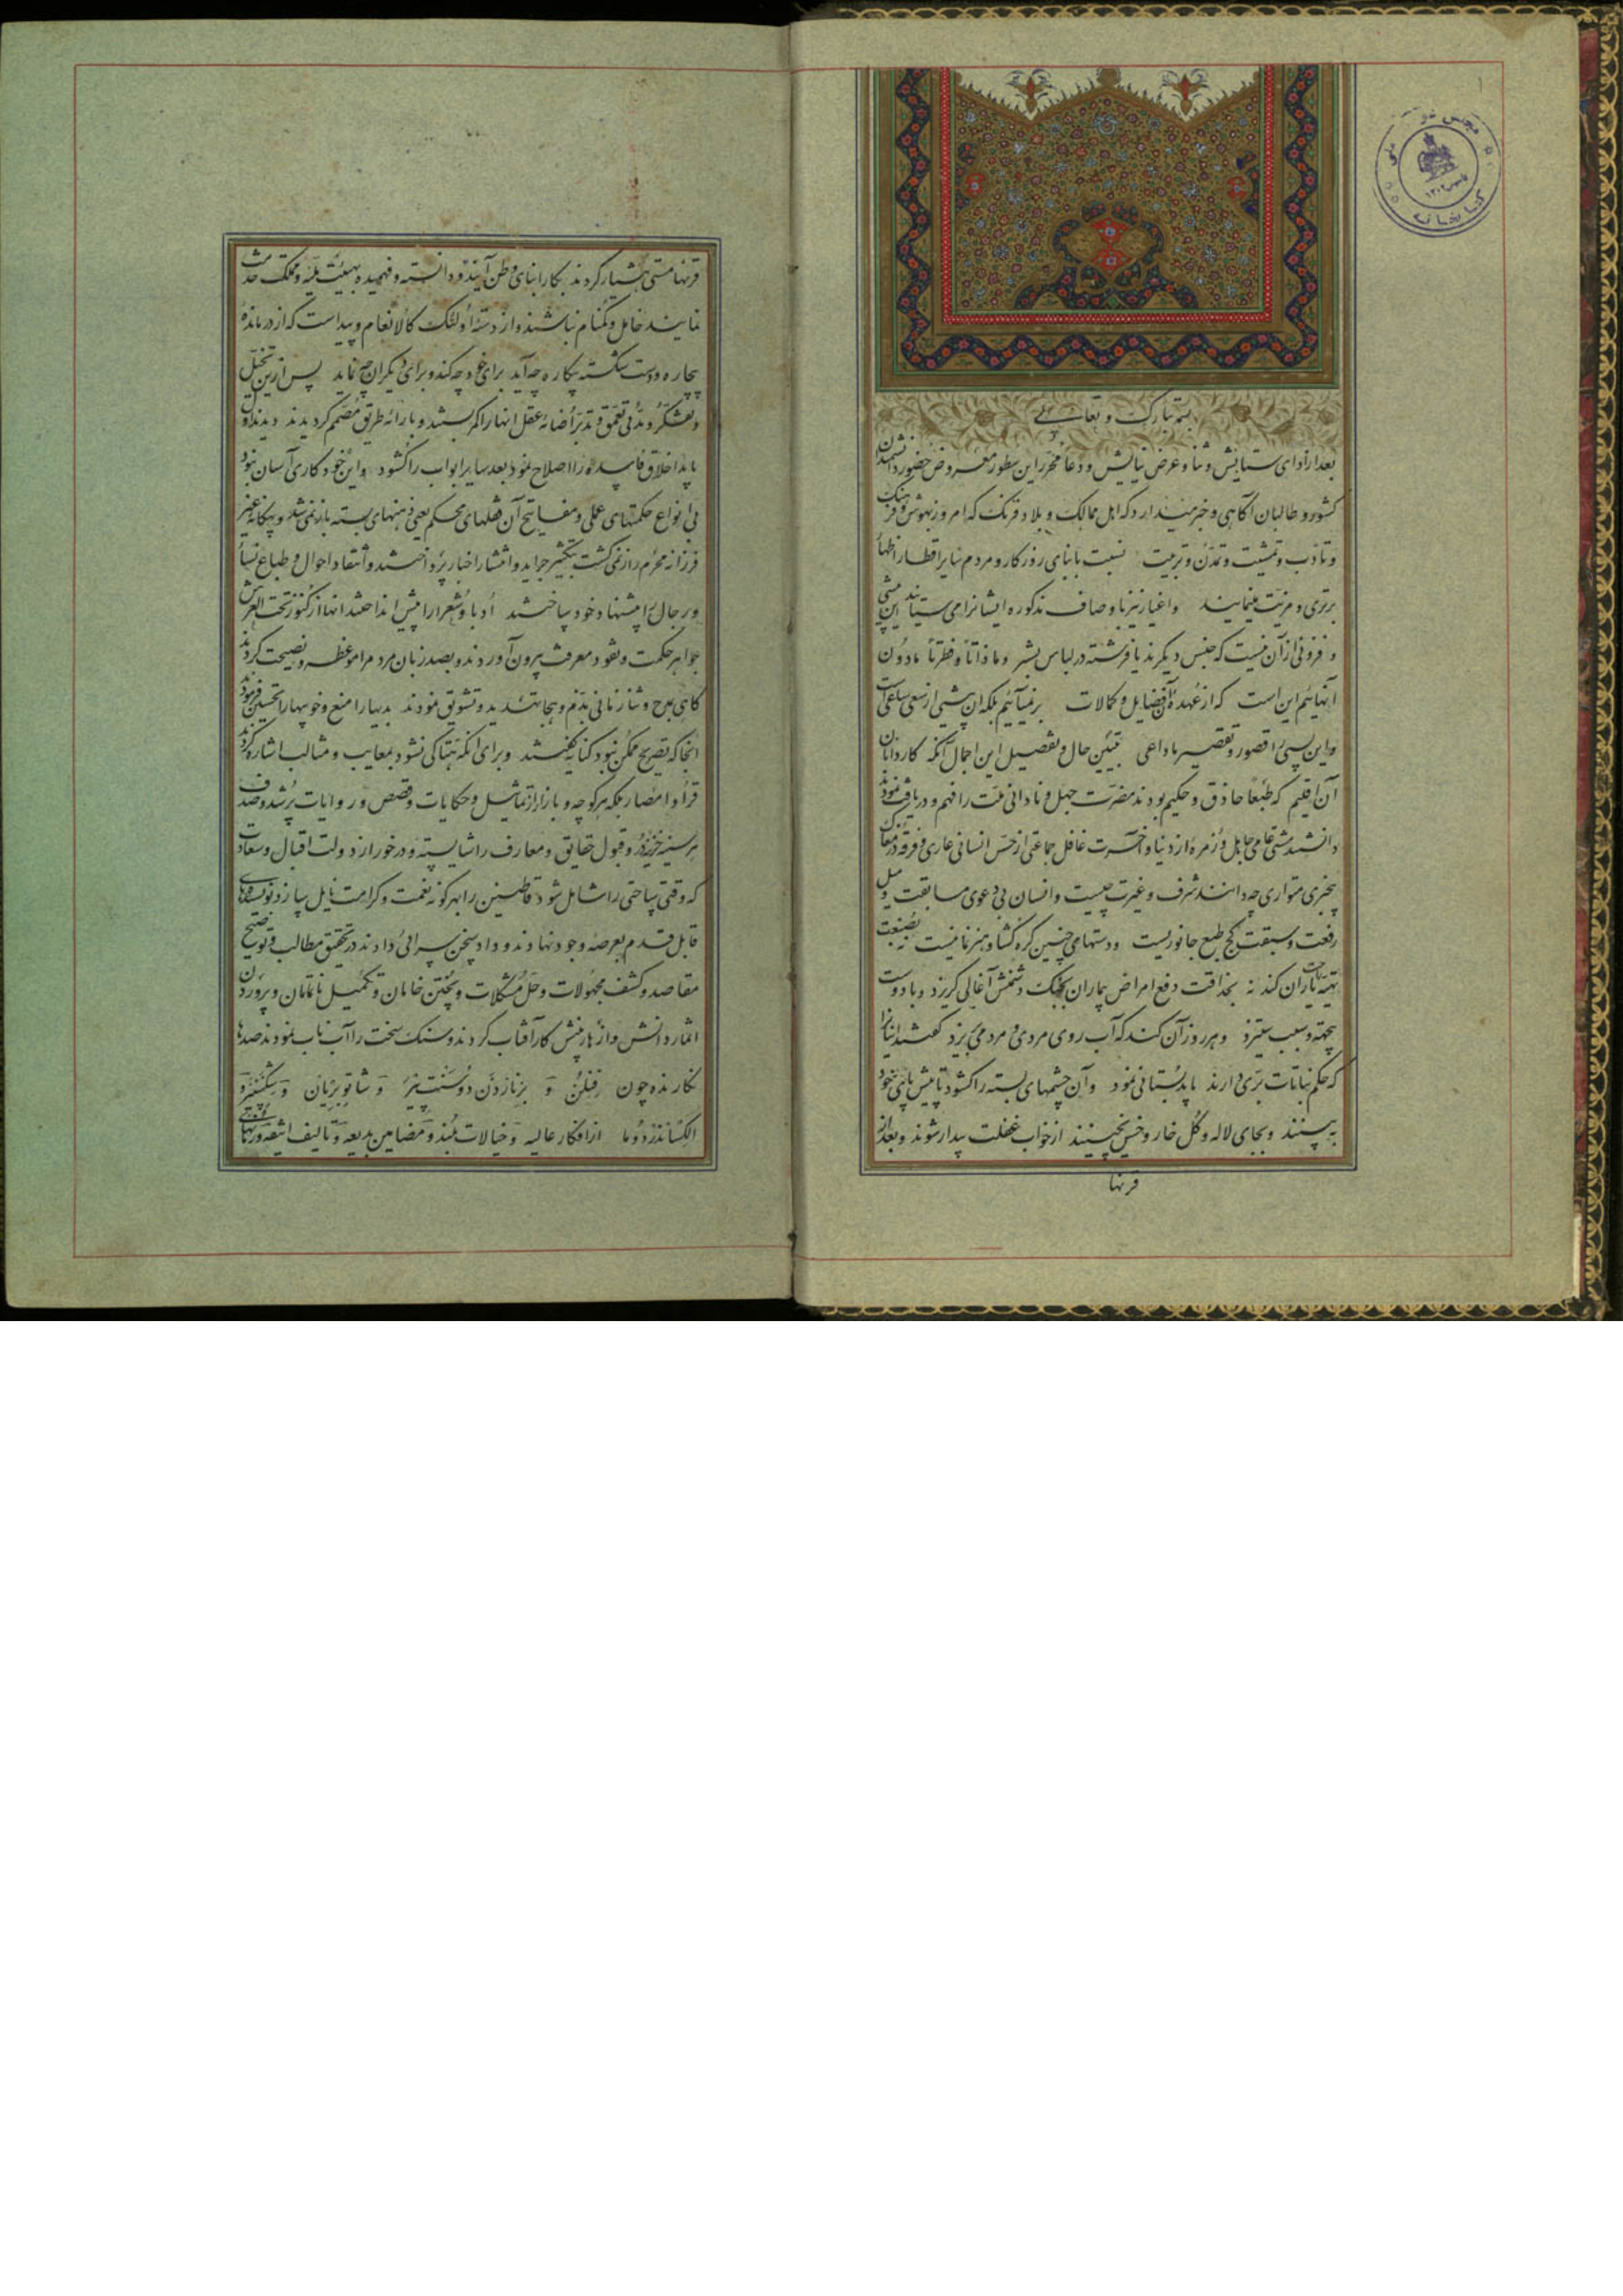 بسمه تبارک و تعالی
بعد از ادای ستایش و ثنا و عرض نیایش و دعا محرّر این سطور معروض حضور دانشمندان
کشور و طالبان آگاهی و خبر میدارد که اهل ممالک و بلاد فرنگ که امروز بهوش و فرهنگ
و تأدب و تمشیت و تمدّن و تربیت نسبت بابنای روزکار و مردم سایر اقطار اظهار
برتری و مزیّت مینمایند واغیار نیز باوصاف مذکوره ایشانرا می ستایند این پیشی
و فزونی از آن نیست که جنس دیکرند یا فرشته در لباس بشر و ما ذاتاً و فطرتاً مادون
آنهائیم این است که از عُهدهٔ آن فضایل و کمالات برنمیآئیم بلکه ان پیشی از سعی ساعی است
و این پسی را قصور و تقصیر ما داعی تبیین حال و تفصیل این اجمال آنکه کاردانان
آن اقلیم که طبعاً حاذق و حکیم بودند مضرّت جهل و نادانی ملّت را فهم و دریافت نمودند
دانستند مشتی عامی جاهل و زمرهٔ از دنیا و آخرت غافل جماعتی از حسّ انسانی عاری و فرقه در مغاک
بیخبری متواری چه دانند شرف و غیرت چیست و انسان بی دعوی مسابقت و میل
رفعت و سبقت کج طبع جانوریست و دستهای چنین کره کشا و هنرنما نیست نه بصنعت
تهیّه یاران کند نه بحذاقت دفع امراض بیماران بجنگ دشمنش آغالی کریزد و با دوست
بیجهة و سبب ستیزد و هر روز آن کند که آب روی مردی و مردمی بریزد کفتند اینانرا
که حکم نباتات برّی دارند باید بُستانی نمود و آن چشمهای بسته را کشود تا پیش پای خود
به بینند و بجای لاله و کُل خار و خس نچینند از خواب غفلت بیدار شوند و بعد از
قرنها
قرنها مستی هشیار کردند بکار ابنای وطن آیند و دانسته و فهمیده بهیئت ملّیه و مملکت خدمت
نمایند خامل و کمنام نباشند و از دستهٔ اولئک کالانعام و پیداست که از درماندهٔ
بیچاره و دست شکسته بیکاره چه آید برای خود چه کند و برای دیکران چه نماید پس از این تخیّل
و تفکّر و مدّتی تعمّق و تدبّر أضائه عقل انها را کمر بستند و بارائه طریق مصمّم کردیدند دیدند اول
باید اخلاق فاسده را اصلاح نمود بعد سایر ابواب را کشود و این خود کاری آسان نبود
بی انواع حکمتهای عملی و مفاتیح آن قفلهای محکم یعنی ذهنهای بسته باز نمی شد و بیکانه غیر
فرزانه محرم راز نمی کشت بتکثیر جراید و انتشار اخبار پرداختند و انتقاد احوال و طباع نسأ
و رجال را پیشنهاد خود ساختند اُدبا و شُعرا را پیش انداختند انها از کنوز تحت العرش
جواهر حکمت و نقود معرفت بیرون آوردند و بصد زبان مردم را موعظه و نصیحت کردند
کاهی بمدح و ثنا زمانی بذم و هجا تهدید و تشویق نمودند بدیها را منع و خوبیها را تحسین فرمودند
انجا که تصریح ممکن نبود کنایه کفتند و برای انکه هتّاکی نشود بمعایب و مثالب اشاره کردند
قرأ و امصار بلکه هر کوچه و بازار از تماثیل و حکایات و قصص و روایات پُر شد و صدف
هر سینه خزینه دُر و قبول حقایق و معارف را شایسته و در خور از دولت اقبال و سعادت
که وقتی ساحتی را شامل شود قاطنین را بهر کونه نعمت و کرامت نایل سازد نویسندهای
قابل قدم بعرصهٔ وجود نهادند و داد سخن سرائی دادند در تحقیق مطالب و توضیح
مقاصد و کشف مجهولات و حلّ مشکلات و پختن خامان و تکمیل ناتمامان و پروردن
اثمار دانش و ازهار بینش کار آفتاب کردند و سنک سخت را آب ناب نمودند صدها
نکارنده چون فِنِلُن و برناردن دو سنت پیر و شاتوبریان و ویکتُر هوکو
الکساندر دوما از افکار عالیه و خیالات بلند و مضامین بدیعه و تألیف انیقه ورقهای